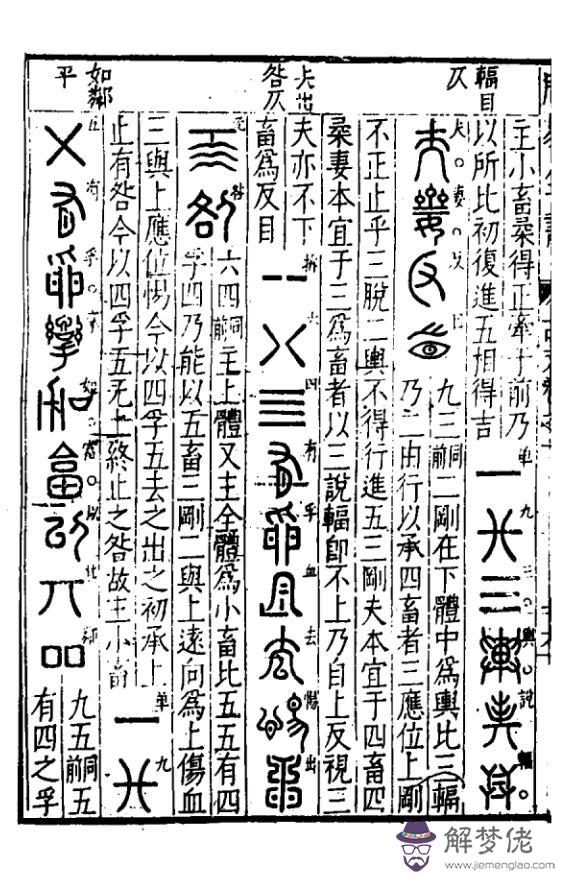 輻目
仄
主小畜桑得正牽于前乃
以所比初復進五相得吉
單 九 三 輿 說 輻
夫 妻 反 目
九三同前二剛在下體中爲輿比三輻
乃二由行以承四畜者三應位上剛
不正止乎三脫二輿不得行進五三剛夫本宜于四畜四
桑妻本宜于三爲畜者以三說輻卽不上乃自上反視三
夫亦不下
畜爲反目
六 四 有 孚 血 去 惕 出
无 咎
六四同前主上體又主全體爲小畜比五五有四
孚四乃能以五畜三剛二與上遠向爲上傷血
三與上應位惕今以四孚五去之出之初承上
止有咎今以四孚五无 終止之咎故主小畜
單 九
五 有 孚 攣 如 富 以 鄰
如鄰
平
九五同前五
有四之孚
解梦佬
www.jiemenglao.com